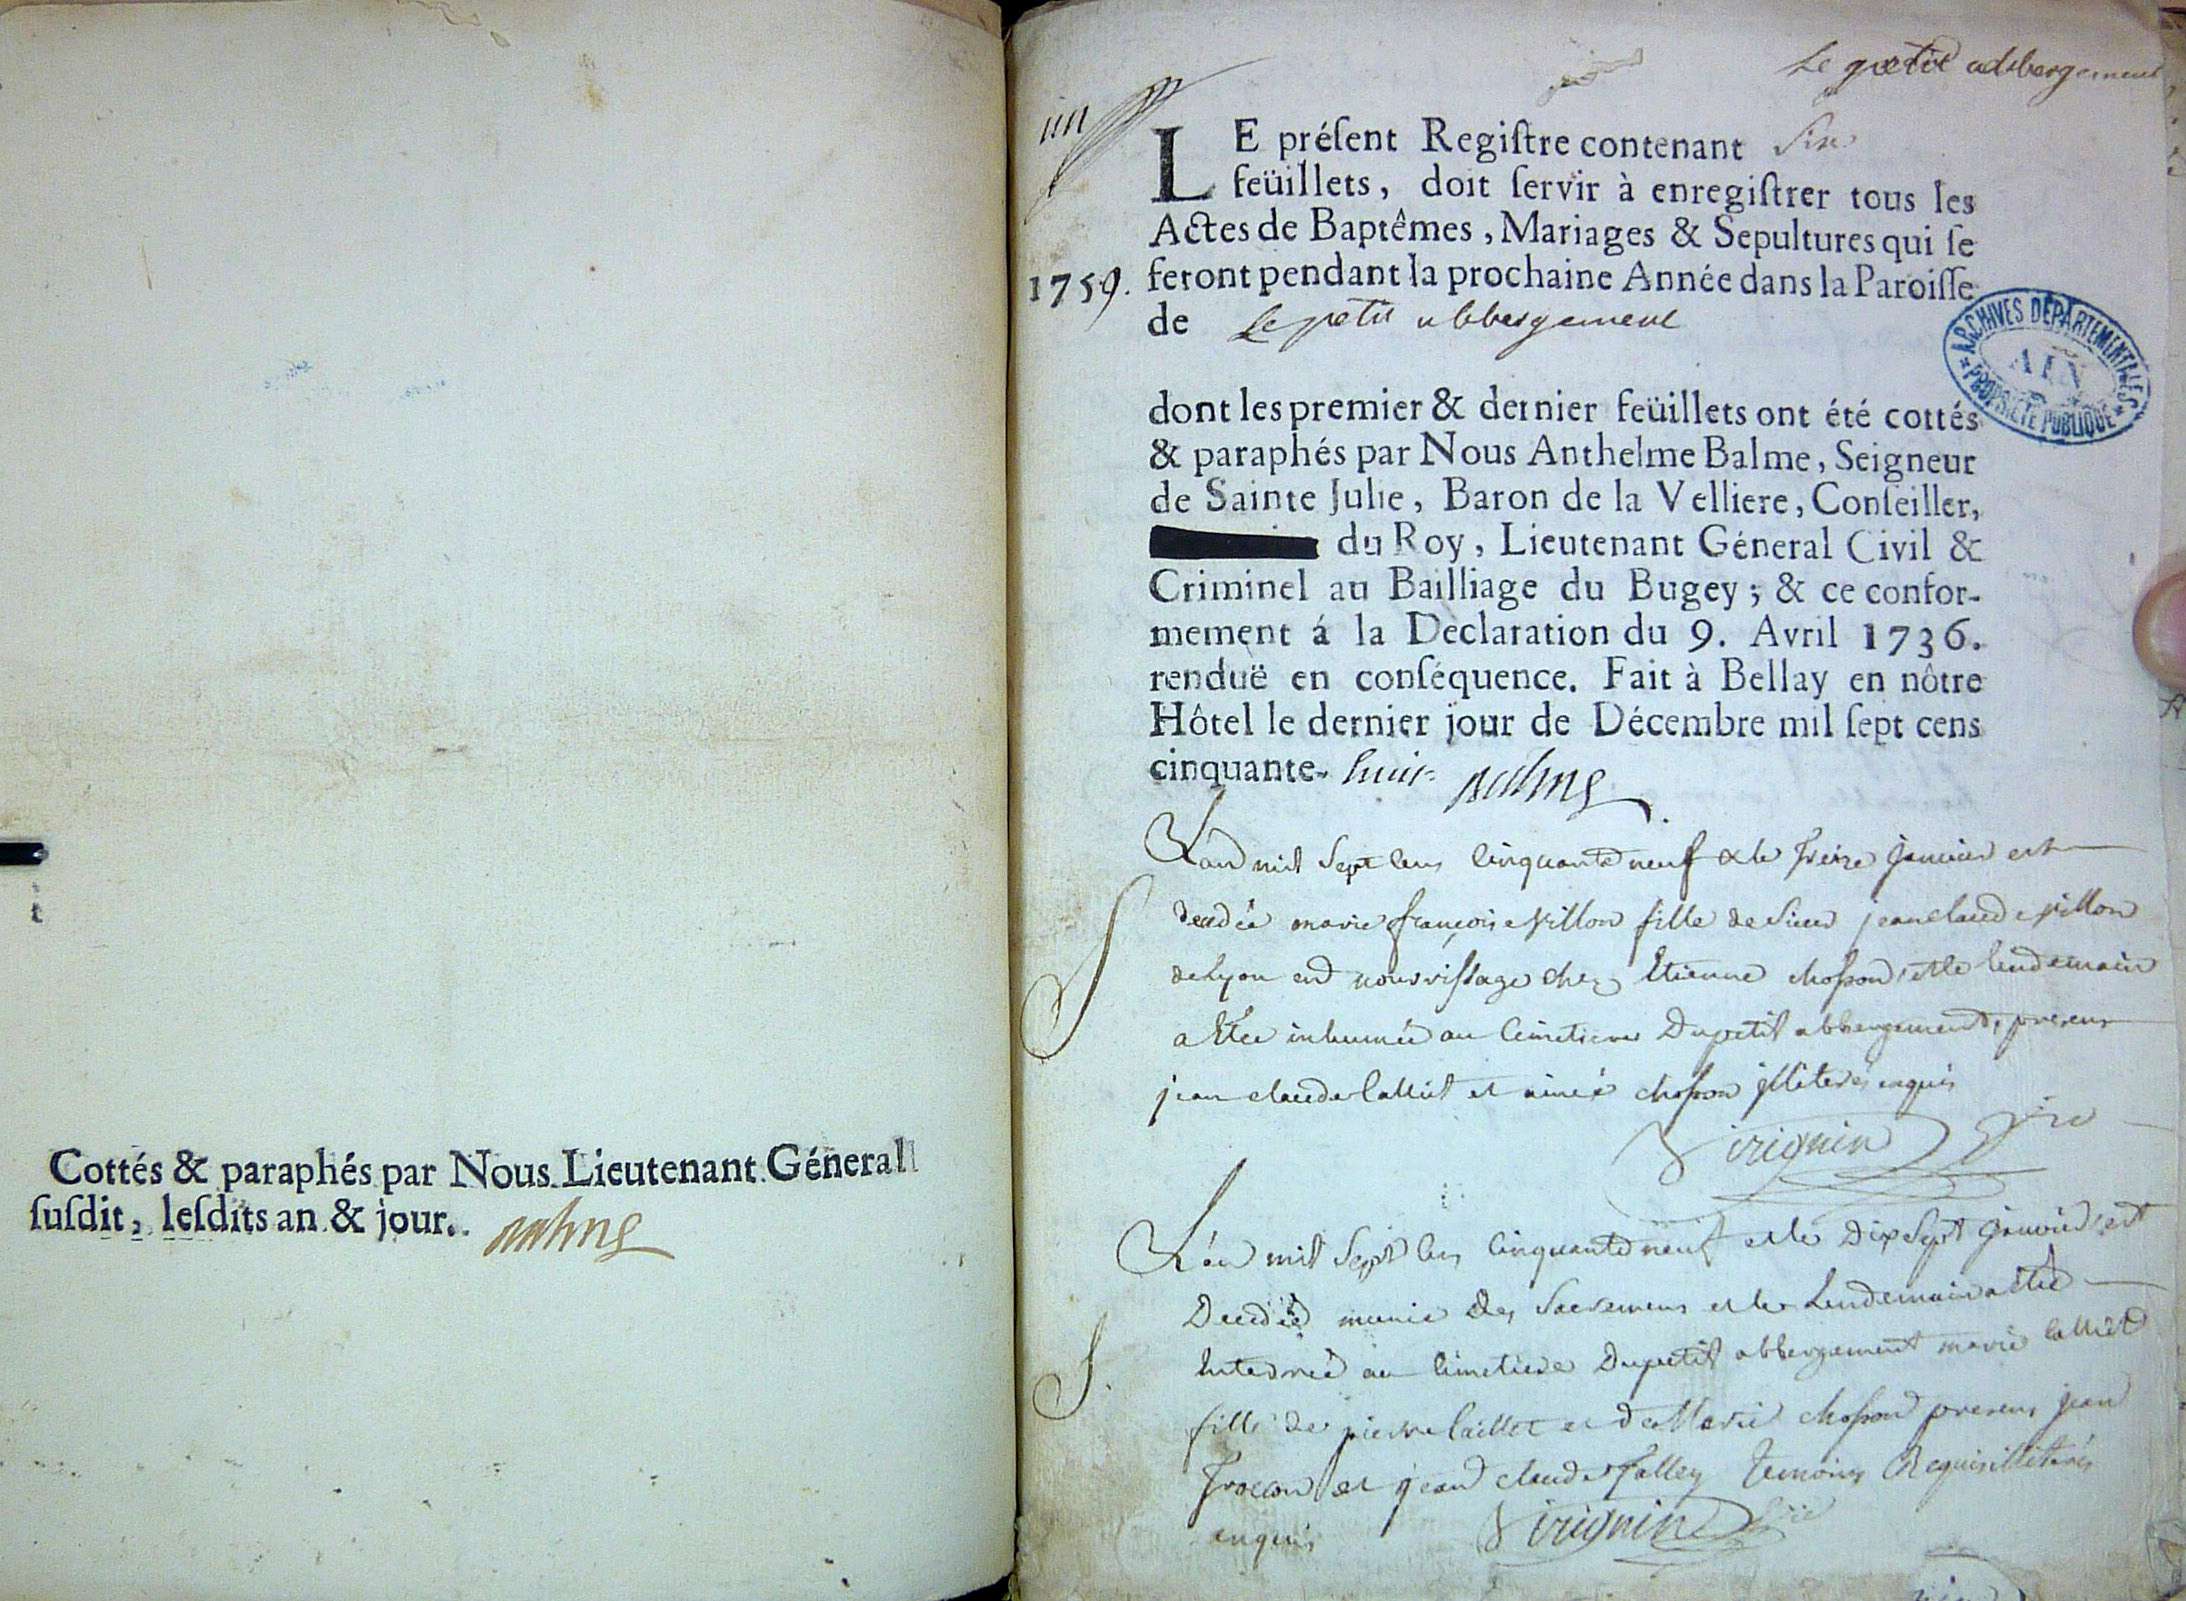 Cottés & paraphés par Nous Lieutenant Géneral
ſuſdit, leſdits an & jour. Balme
Le petit abbergement
un
LE préſent Regiſtre contenant Six
feüillets, doit ſervir à enregiſtrer tous les
Actes de Baptêmes, Mariages & Sepultures qui ſe
1759. feront pendant la prochaine Année dans la Paroiſſe
de Le petit abbergement
ARCHIVES DÉPARTEMENTALES
AIN
PROPRIÉTÉ PUBLIQUE
dont les premier & dernier feüillets ont été cottés
& paraphés par Nous Anthelme Balme, Seigneur
de Sainte Julie, Baron de la Velliere, Conſeiller,
du Roy, Lieutenant Géneral Civil &
Criminel au Bailliage du Bugey; & ce confor-
mement á la Declaration du 9. Avril 1736.
renduë en conſéquence. Fait à Bellay en nôtre
Hôtel le dernier jour de Décembre mil ſept cens
cinquante- huit Balme
L'an mil Sept cens cinquante neuf & le treize janvier est
S decedée marie françoise pillon fille de Sieur jean claude pillon
de Lyon en nourrissage chez Etienne chosson, et le lendemain
a Etée inhumée au cimetiere Dupetit abbergement, presens
jean claude Calliet et aimé chosson illiterés enquis
Virignin
L'an mil Sept cens cinquante neuf et le Dix Sept janvier est
Decedée munie des Sacremens et le Lendemain a été
S. Enterrée au cimetiere Dupetit abbergement marie Calliet
fille de pierre Calliet et de Marie chosson presens jean
Troccon et jean claude Talley temoins Requis illiterés
enquis Virignin